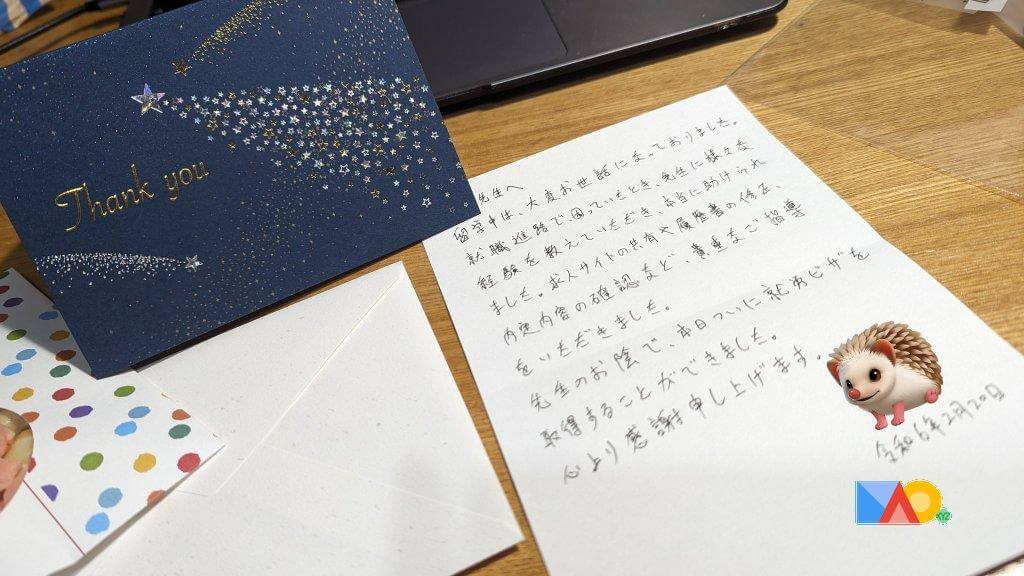 Thank you
先生へ
留学中は、大変お世話になっておりました。
就職進路で困っていたとき、先生に様々な
経験を教えていただき、本当に助けられ
ました。求人サイトの共有や履歴書の修正、
内定内容の確認など、貴重なご指導
をいただきました。
先生のお陰で、本日ついに就労ビザを
取得することができました。
心より感謝申し上げます。
令和6年2月20日
MAO
XYZ